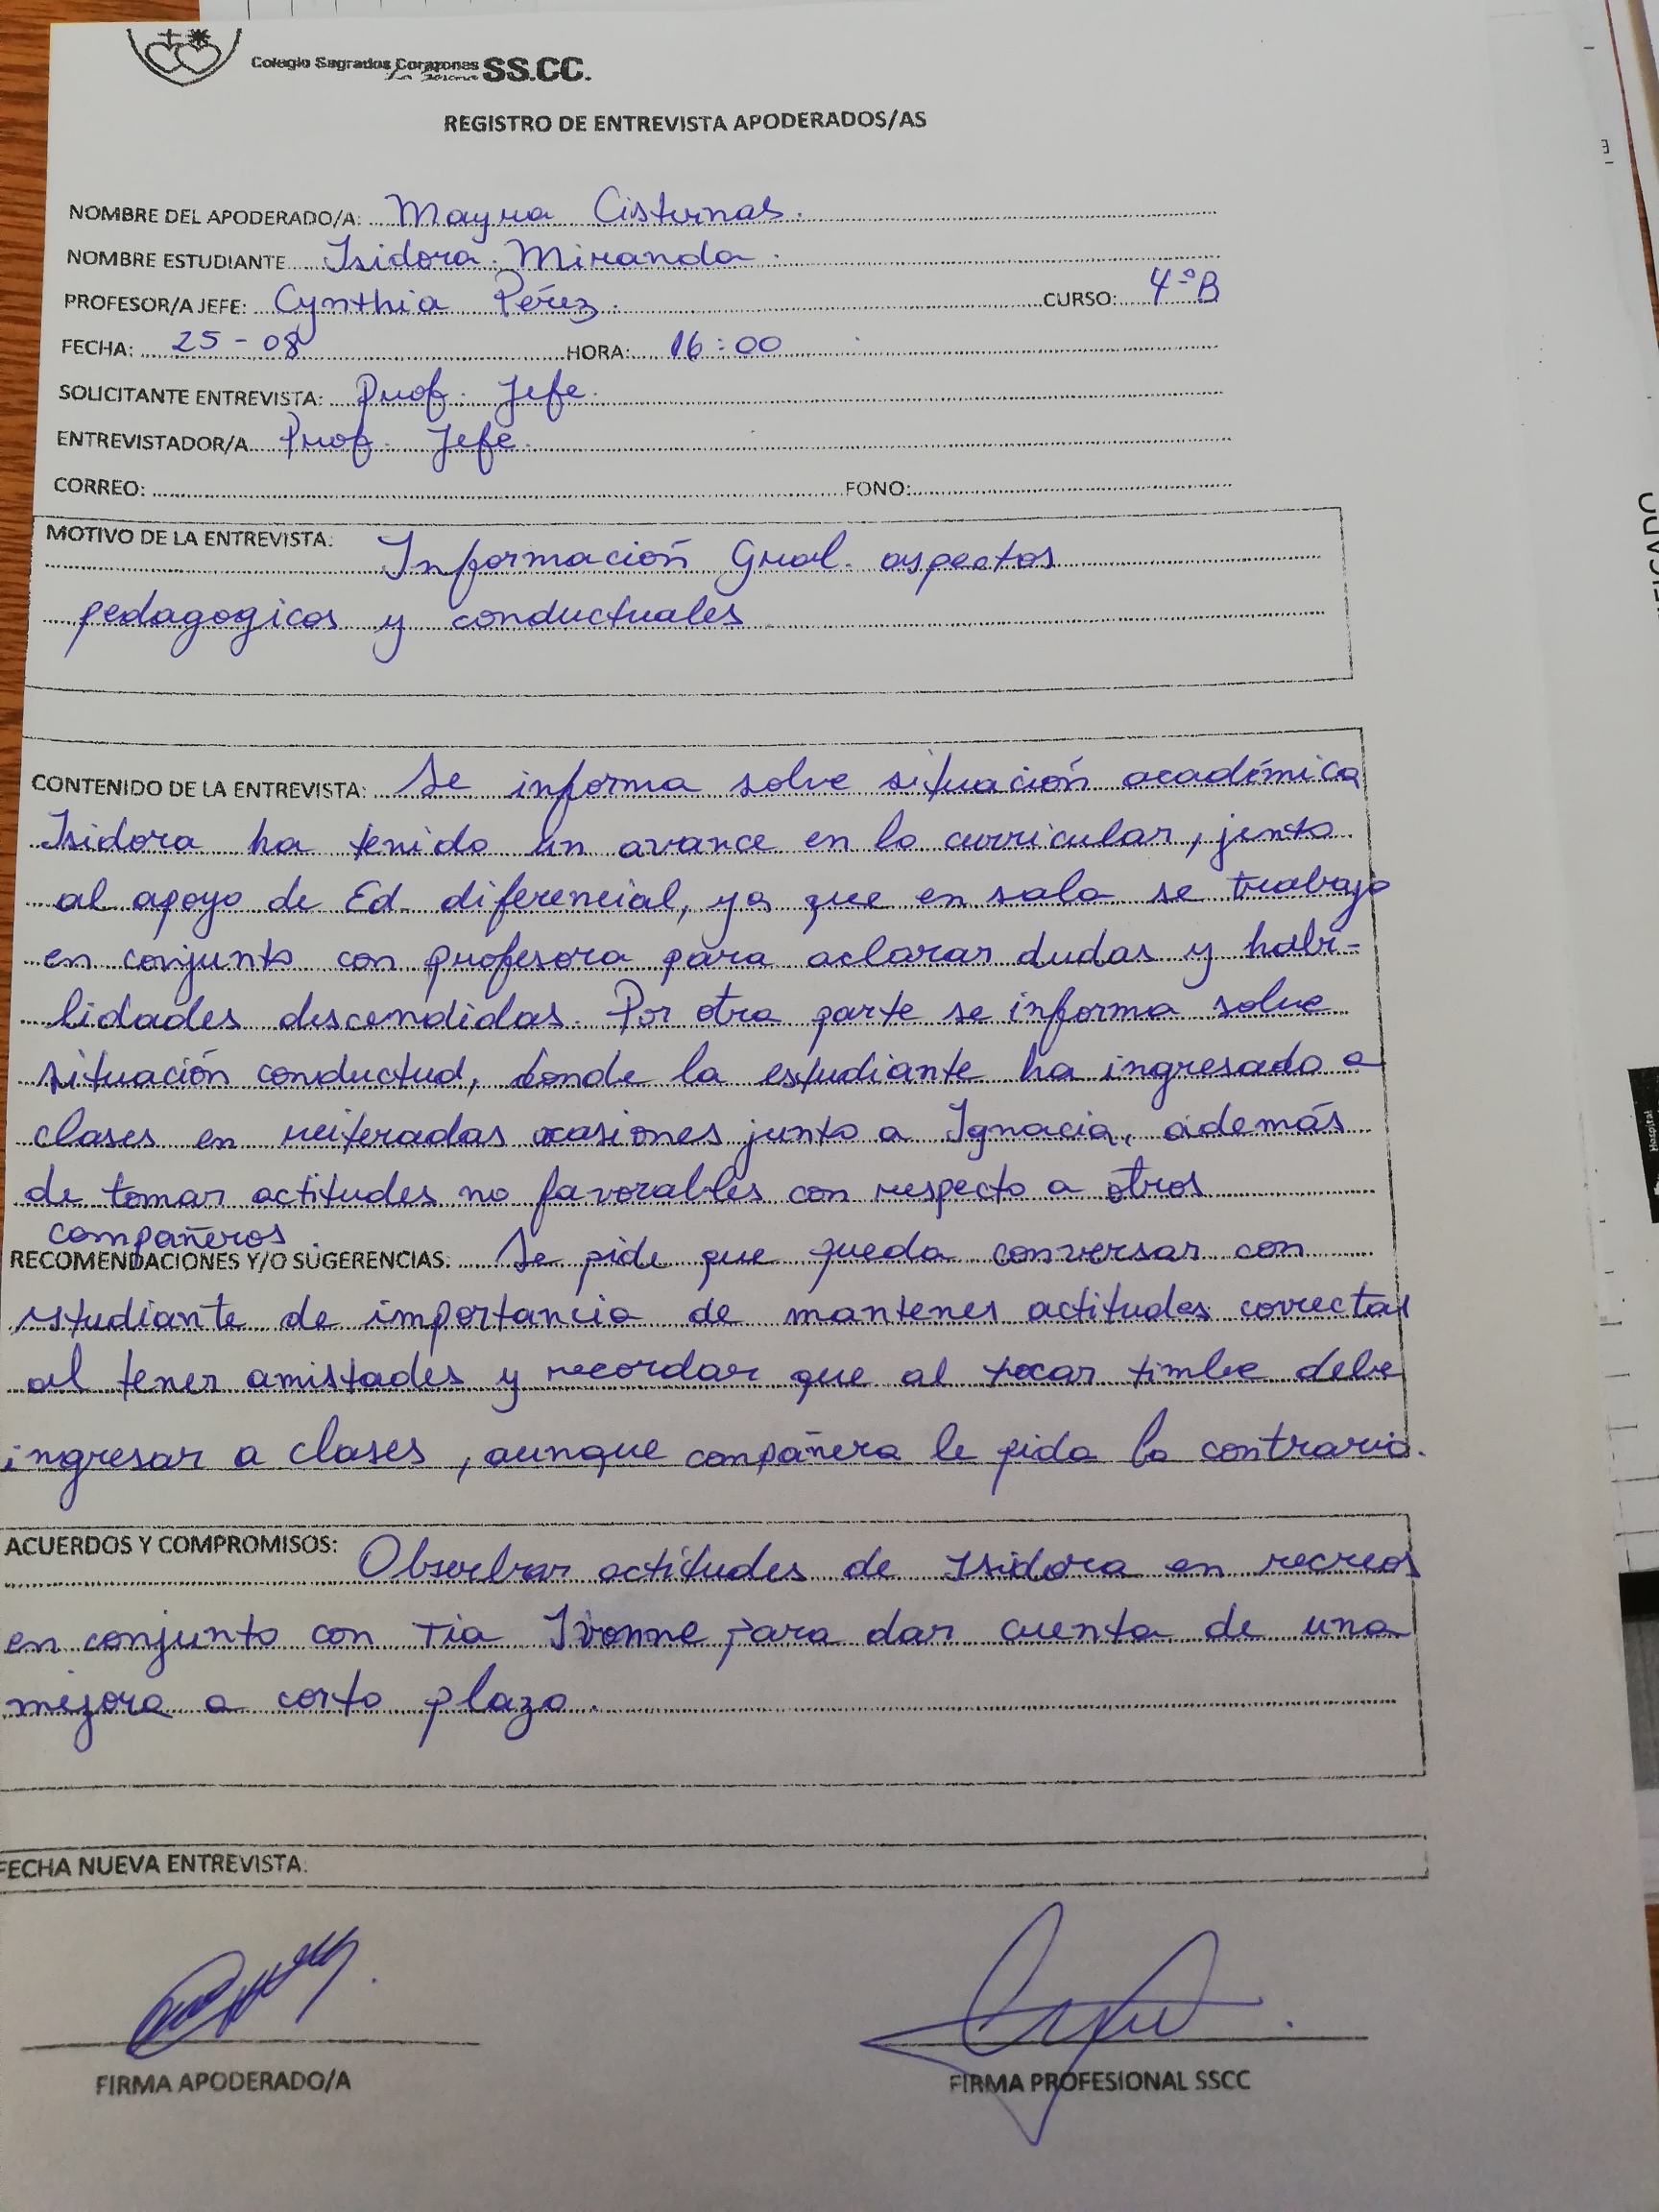 Colegio Sagrados Corazones SS.CC.
La Serena
REGISTRO DE ENTREVISTA APODERADOS/AS
NOMBRE DEL APODERADO/A: Mayra Cisternas.
NOMBRE ESTUDIANTE Isidora Miranda.
PROFESOR/A JEFE: Cynthia Pérez. CURSO: 4°B
FECHA: 25-08 HORA: 16:00
SOLICITANTE ENTREVISTA: Prof. Jefe.
ENTREVISTADOR/A Prof. Jefe.
CORREO: FONO:
MOTIVO DE LA ENTREVISTA: Información Gral. aspectos
pedagogicos y conductuales
CONTENIDO DE LA ENTREVISTA: Se informa sobre situación académica
Isidora ha tenido un avance en lo curricular, junto
al apoyo de Ed. diferencial, ya que en sala se trabaja
en conjunto con profesora para aclarar dudas y habi-
lidades descendidas. Por otra parte se informa sobre
situación conductud, donde la estudiante ha ingresado a
clases en reiteradas ocasiones junto a Ignacia, además
de tomar actitudes no favorables con respecto a otros
compañeros.
RECOMENDACIONES Y/O SUGERENCIAS: Se pide que pueda conversar con
estudiante de importancia de mantener actitudes correctas
al tener amistades y recordar que al tocar timbre debe
ingresar a clases, aunque compañera le pida lo contrario.
ACUERDOS Y COMPROMISOS: Obserbrar actitudes de Isidora en recreos
en conjunto con Tia Ivonne para dar cuenta de una
mejora a corto plazo.
FECHA NUEVA ENTREVISTA:
FIRMA APODERADO/A FIRMA PROFESIONAL SSCC
Hospital